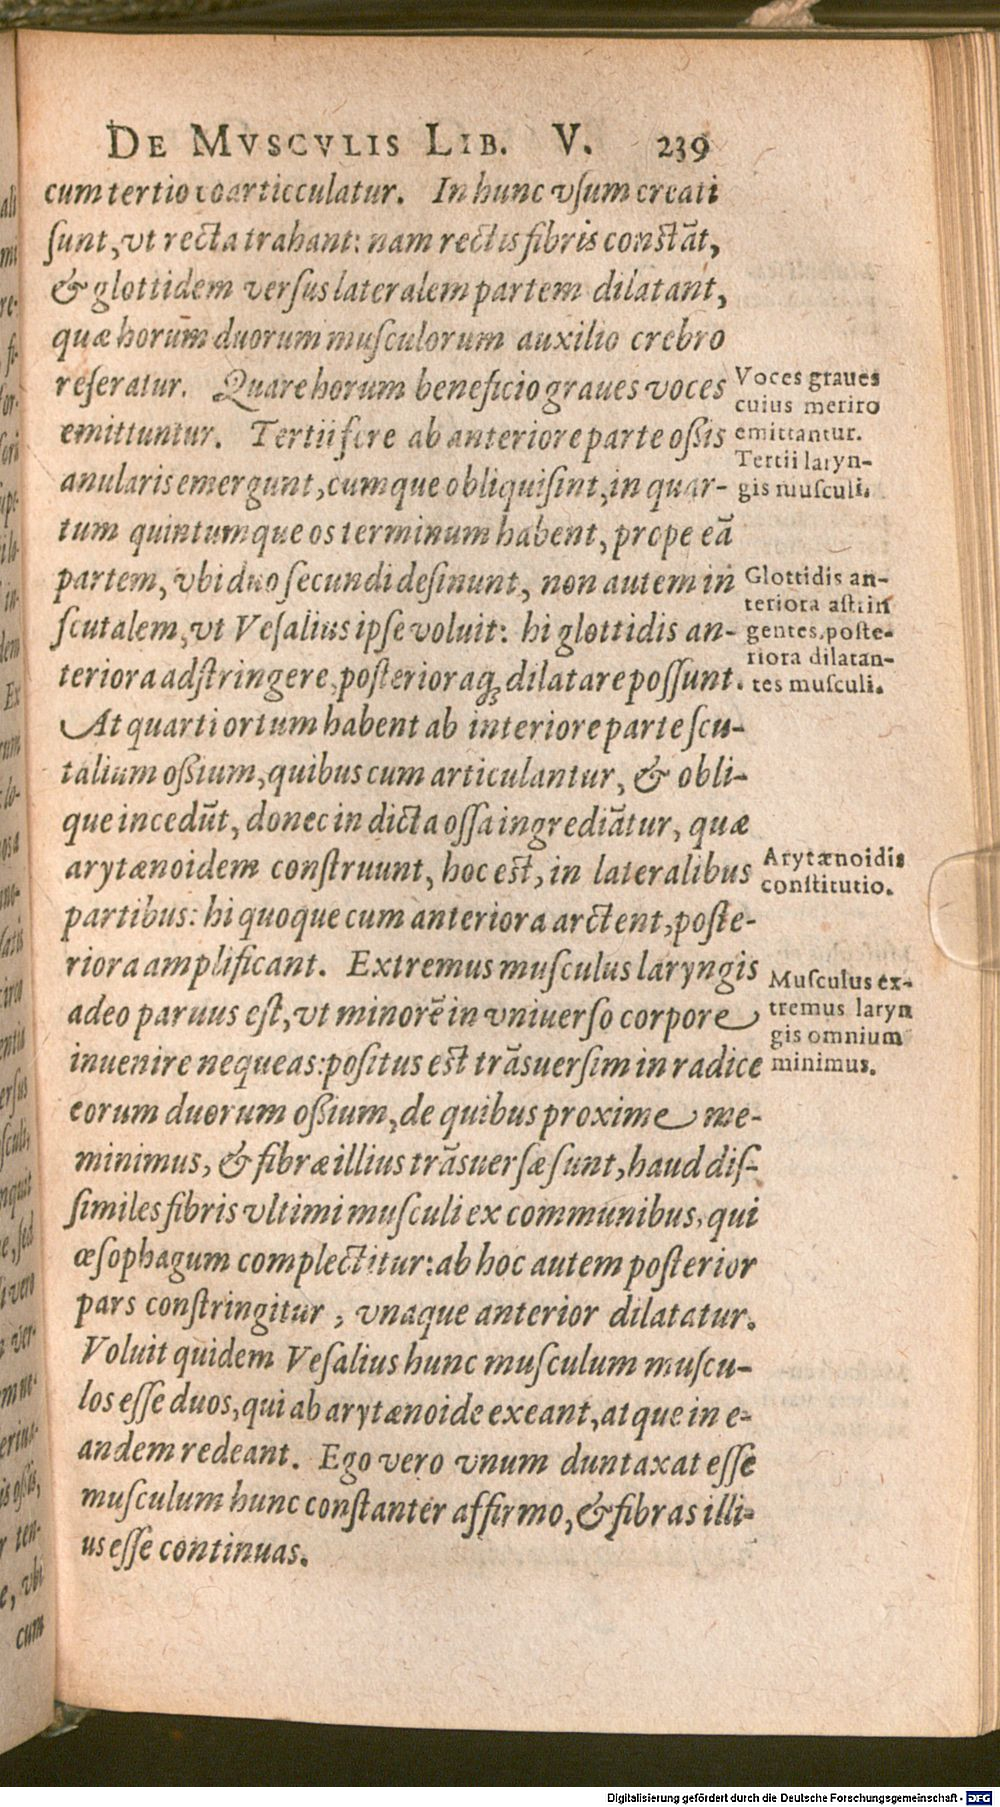 DE MVSCVLIS LIB. V. 239
cum tertio coarticculatur. In hunc vsum creati
sunt, vt recta trahant: nam rectis fibris constāt,
& glottidem versus lateralem partem dilatant,
quæ horum duorum musculorum auxilio crebro
reseratur. Quare horum beneficio graues voces
emittuntur. Tertii fere ab anteriore parte oßis
anularis emergunt, cumque obliqui sint, in quar-
tum quintumque os terminum habent, prope eā
partem, vbi duo secundi desinunt, non autem in
scutalem, vt Vesalius ipse voluit: hi glottidis an-
teriora adstringere, posterioraq́; dilatare possunt.
At quarti ortum habent ab interiore parte scu-
talium oßium, quibus cum articulantur, & obli-
que incedūt, donec in dicta ossa ingrediātur, quæ
arytænoidem construunt, hoc est, in lateralibus
partibus: hi quoque cum anteriora arctent, poste-
riora amplificant. Extremus musculus laryngis
adeo paruus est, vt minorē in vniuerso corpore
inuenire nequeas: positus est trāsuersim in radice
eorum duorum oßium, de quibus proxime me-
minimus, & fibræ illius trāsuersæ sunt, haud dis-
similes fibris vltimi musculi ex communibus, qui
œsophagum complectitur: ab hoc autem posterior
pars constringitur, vnaque anterior dilatatur.
Voluit quidem Vesalius hunc musculum muscu-
los esse duos, qui ab arytænoide exeant, atque in e-
andem redeant. Ego vero vnum duntaxat esse
musculum hunc constanter affirmo, & fibras illi-
us esse continuas.
Voces graues
cuius meriro
emittantur.
Tertii laryn-
gis musculi.
Glottidis an-
teriora astrin
gentes, poste-
riora dilatan-
tes musculi.
Arytænoidis
constitutio.
Musculus ex-
tremus laryn
gis omnium
minimus.
Digitalisierung gefördert durch die Deutsche Forschungsgemeinschaft - DFG